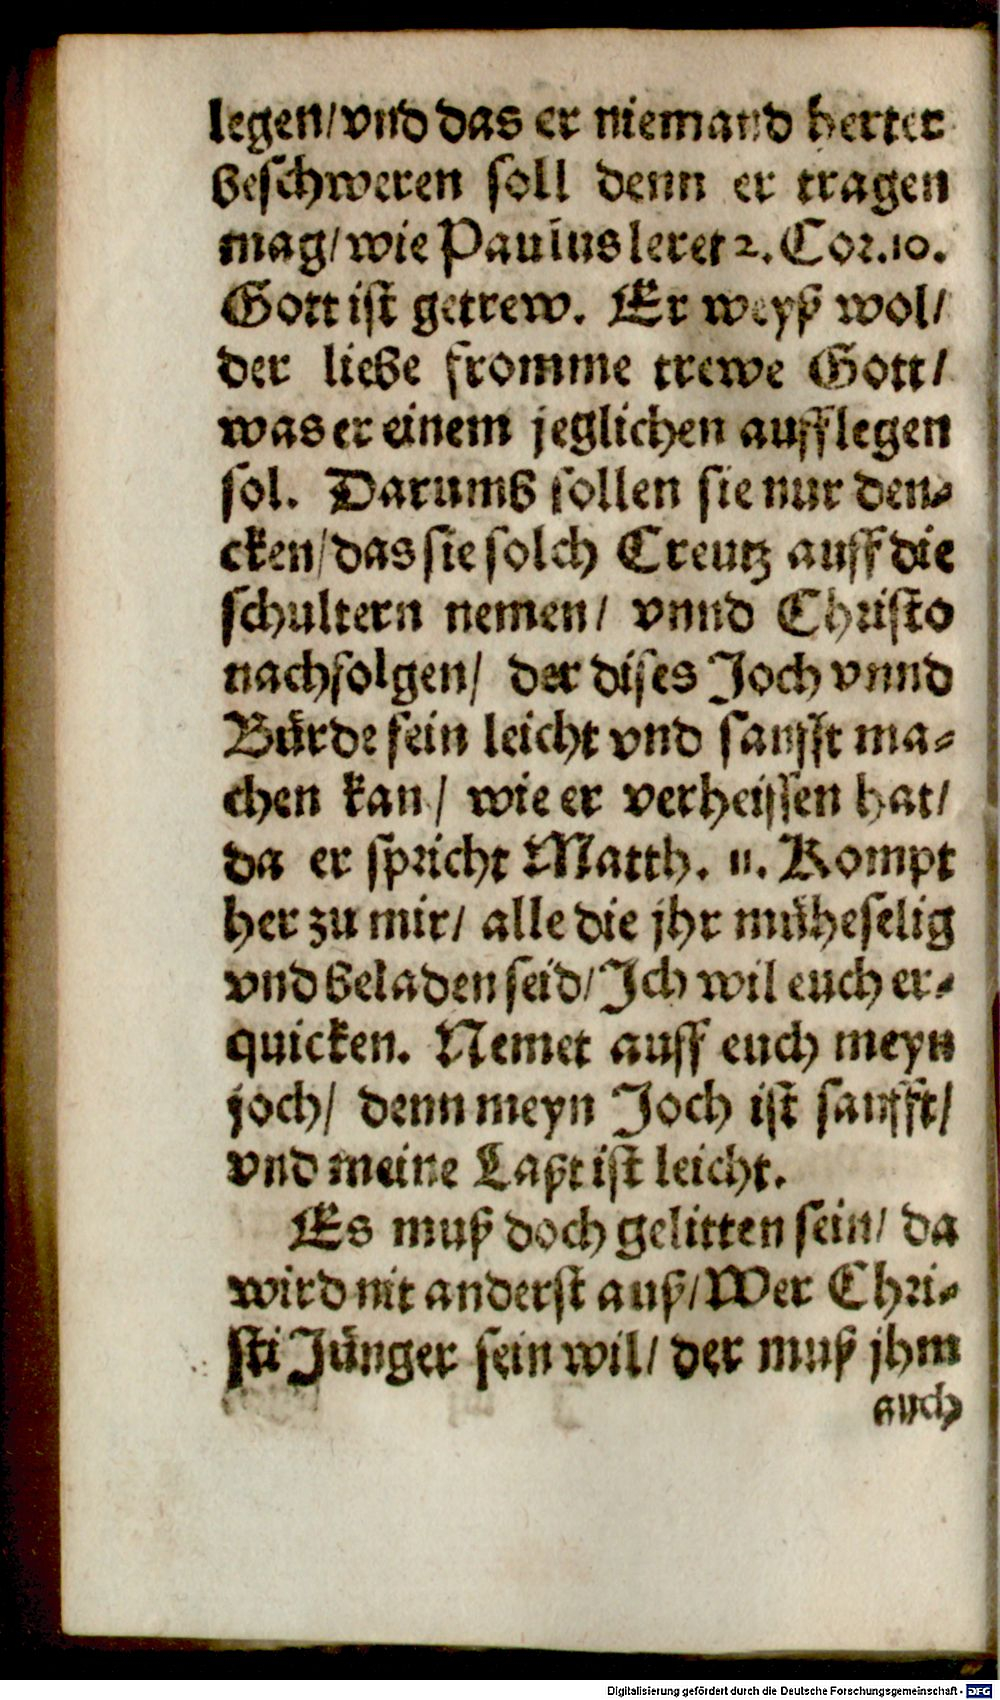 legen/vnd das er niemand herter
beschweren soll denn er tragen
mag/wie Paulus leret 2. Cor. 10.
Gott ist getrew. Er weyß wol/
der liebe fromme trewe Gott/
was er einem jeglichen aufflegen
sol. Darumb sollen sie nur den-
cken/das sie solch Creutz auff die
schultern nemen/ vnnd Christo
nachfolgen/ der dises Joch vnnd
Bürde fein leicht vnd sanfft ma-
chen kan/ wie er verheissen hat/
da er spricht Matth. 11. Kompt
her zu mir/ alle die jhr müheselig
vnd beladen seid/Ich wil euch er-
quicken. Nemet auff euch meyn
joch/ denn meyn Joch ist sanfft/
vnd meine Laßt ist leicht.
Es muß doch gelitten sein/ da
wird nit anderst auß/Wer Chri-
sti Jünger sein wil/ der muß jhm
auch
Digitalisierung gefördert durch die Deutsche Forschungsgemeinschaft - DFG